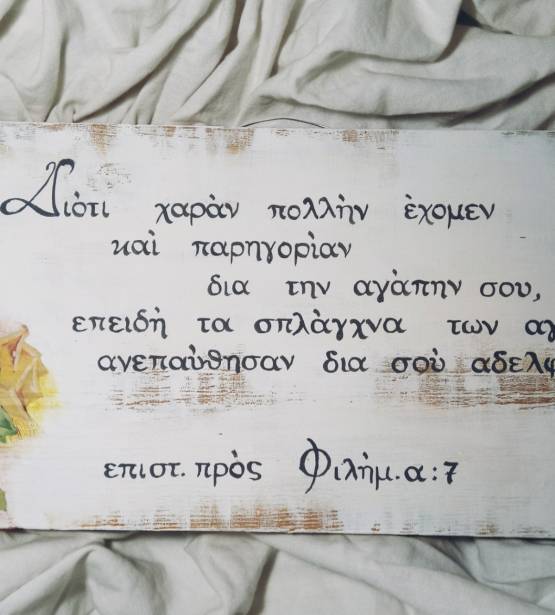 Διὸτι χαρὰν πολλὴν ὲχομεν
καὶ παρηγορὶαν
δια την αγὰπην σου,
επειδὴ τα σπλὰγχνα των αγ
ανεπαὺθησαν δια σοὺ αδελφ
επιστ. πρὸς Φιλὴμ. α:7